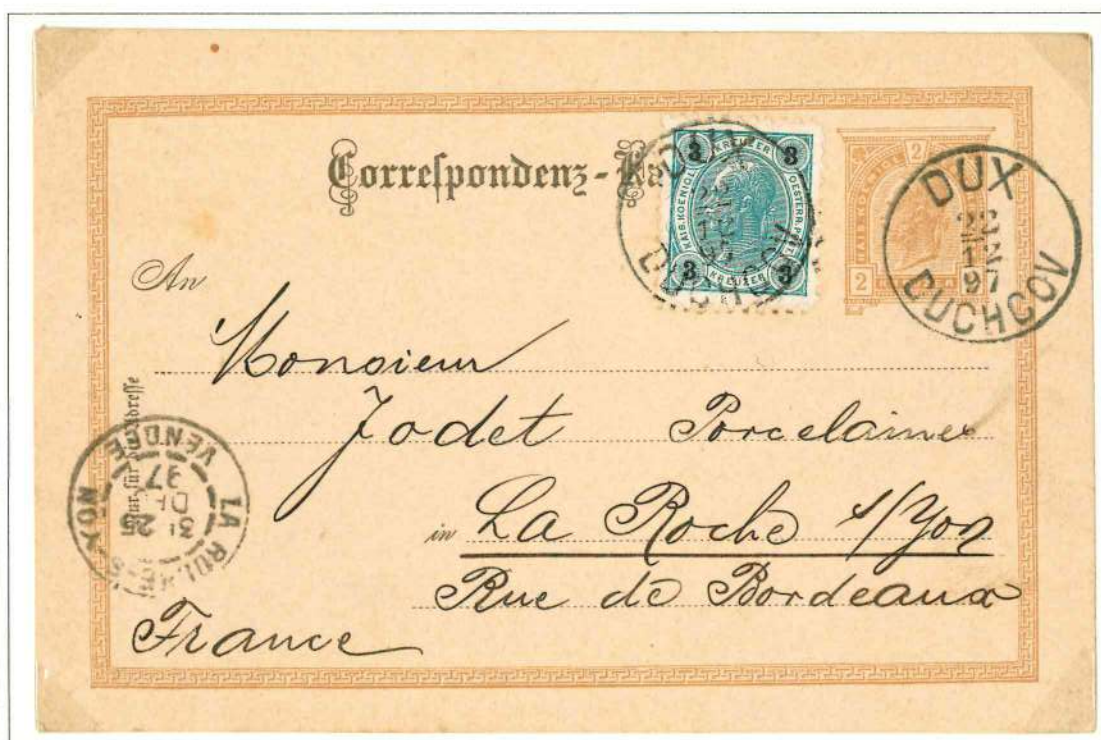 Correspondenz-Ka
3 KREUZER 3
KAIS. KOENIGL.
OESTERR. POST
3 KREUZER 3
2
2
DUX
22
12
97
DUCHCOV
DUX
22
12
DUCHCOV
An
Monsieur
Jodet Porcelaines
in La Roche s/Yon
Rue de Bordeaux
France
Nur für die Adresse
LA ROCHE S YON
25
DE
97
VENDEE